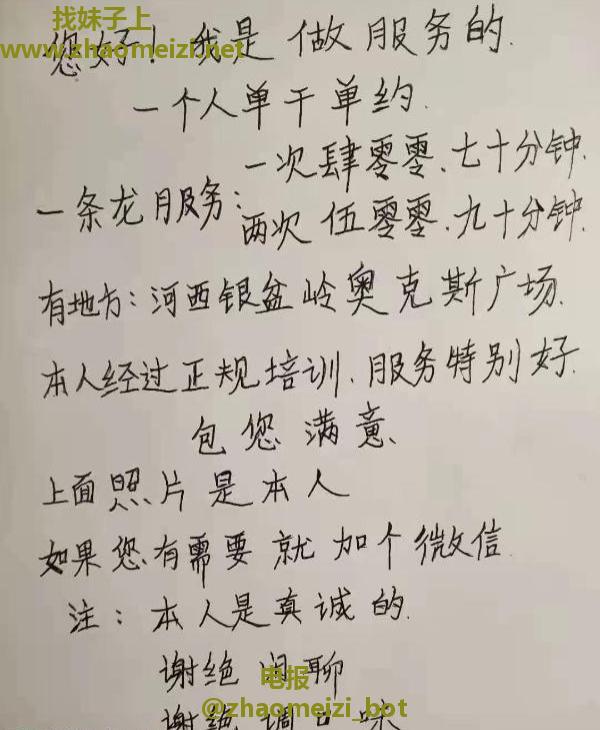 找妹子上
www.zhaomeizi.net
您好！我是做服务的.
一个人单干单约.
一次肆零零.七十分钟.
一条龙服务：
两次伍零零.九十分钟.
有地方：河西银盆岭奥克斯广场.
本人经过正规培训.服务特别好.
包您满意、
上面照片是本人
如果您有需要就加个微信.
注：本人是真诚的.
谢绝闲聊
电报
@zhaomeizi_bot
谢绝调口味